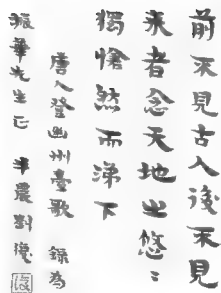 前不見古人後不見
来者念天地之悠〻
獨愴然而涕下
唐人登幽州臺歌 録為
振華先生正 半農劉復